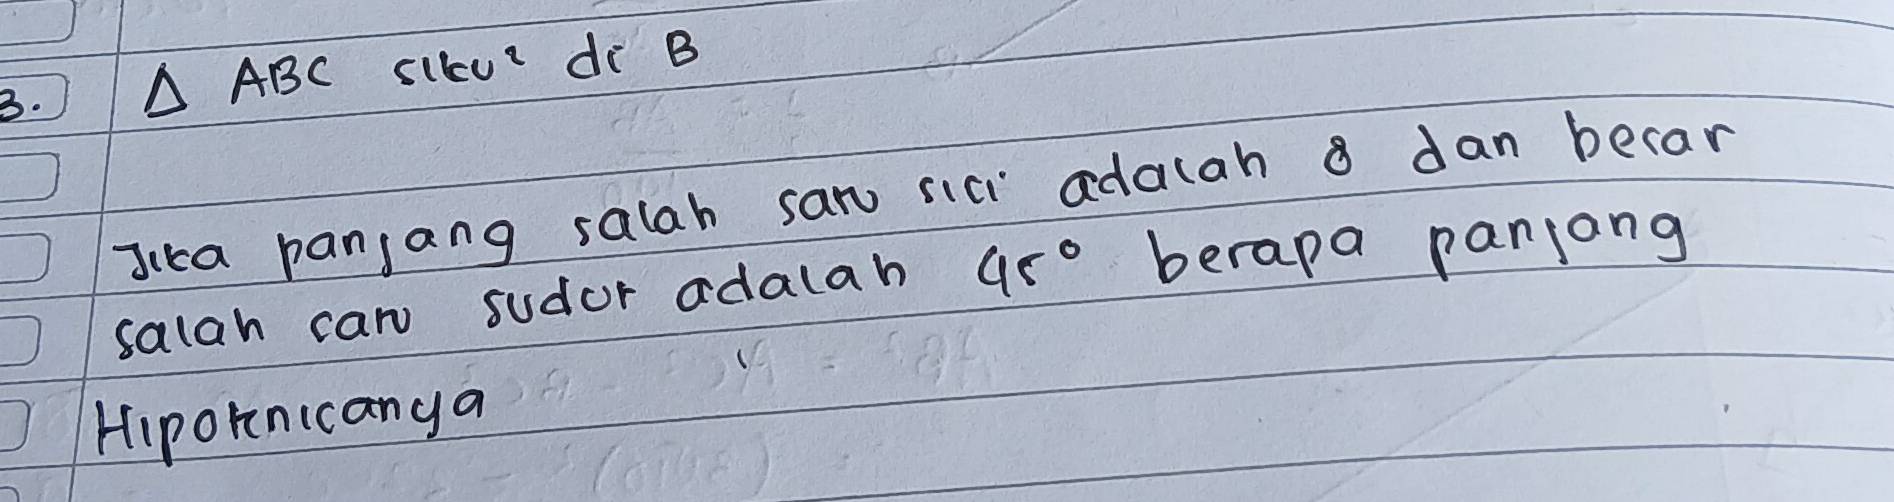 3. Δ ABC siku² di B
Jika panjang salah satu sisi adalah 8 dan besar
salah satu sudut adalah 45° berapa panjang
Hipotenisanya